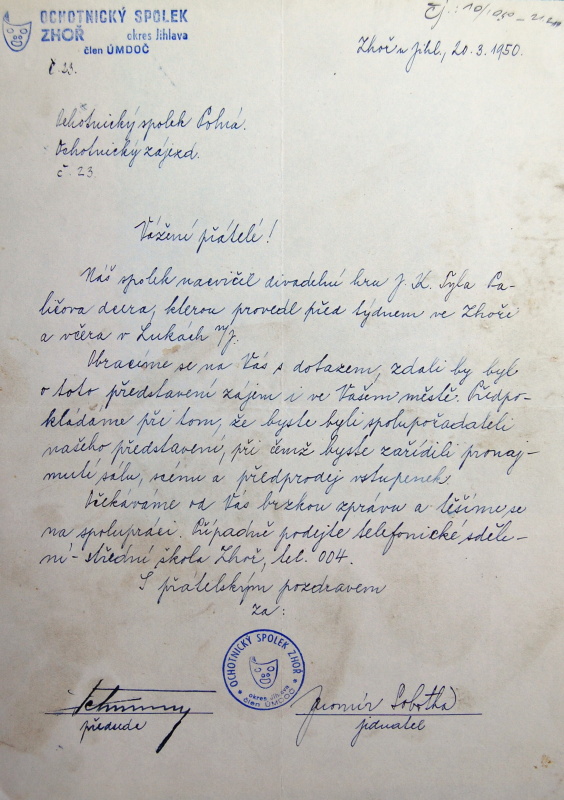 OCHOTNICKÝ SPOLEK
ZHOŘ okres Jihlava
člen ÚMDOČ
č. 23.
Čj.: 10/1950
Zhoř u Jihl., 20.3.1950.
Ochotnický spolek Polná.
Ochotnický zájezd.
č. 23.
Vážení přátelé!
Náš spolek nacvičil divadelní hru J. K. Tyla Pa-
ličova dcera, kterou provedl před týdnem ve Zhoři
a včera v Lukách n/J.
Obracíme se na Vás s dotazem, zdali by byl
o toto představení zájem i ve Vašem městě. Předpo-
kládáme při tom, že byste byli spolupořadateli
našeho představení, při čemž byste zařídili pronaj-
mutí sálu, scénu a předprodej vstupenek.
Očekáváme od Vás brzkou zprávu a těšíme se
na spolupráci. Případně podejte telefonické sděle-
ní - střední škola Zhoř, tel. 004.
S přátelským pozdravem
za:
OCHOTNICKÝ SPOLEK ZHOŘ
okres Jihlava
člen ÚMDOČ
Jaromír Sobotka
předseda
jednatel